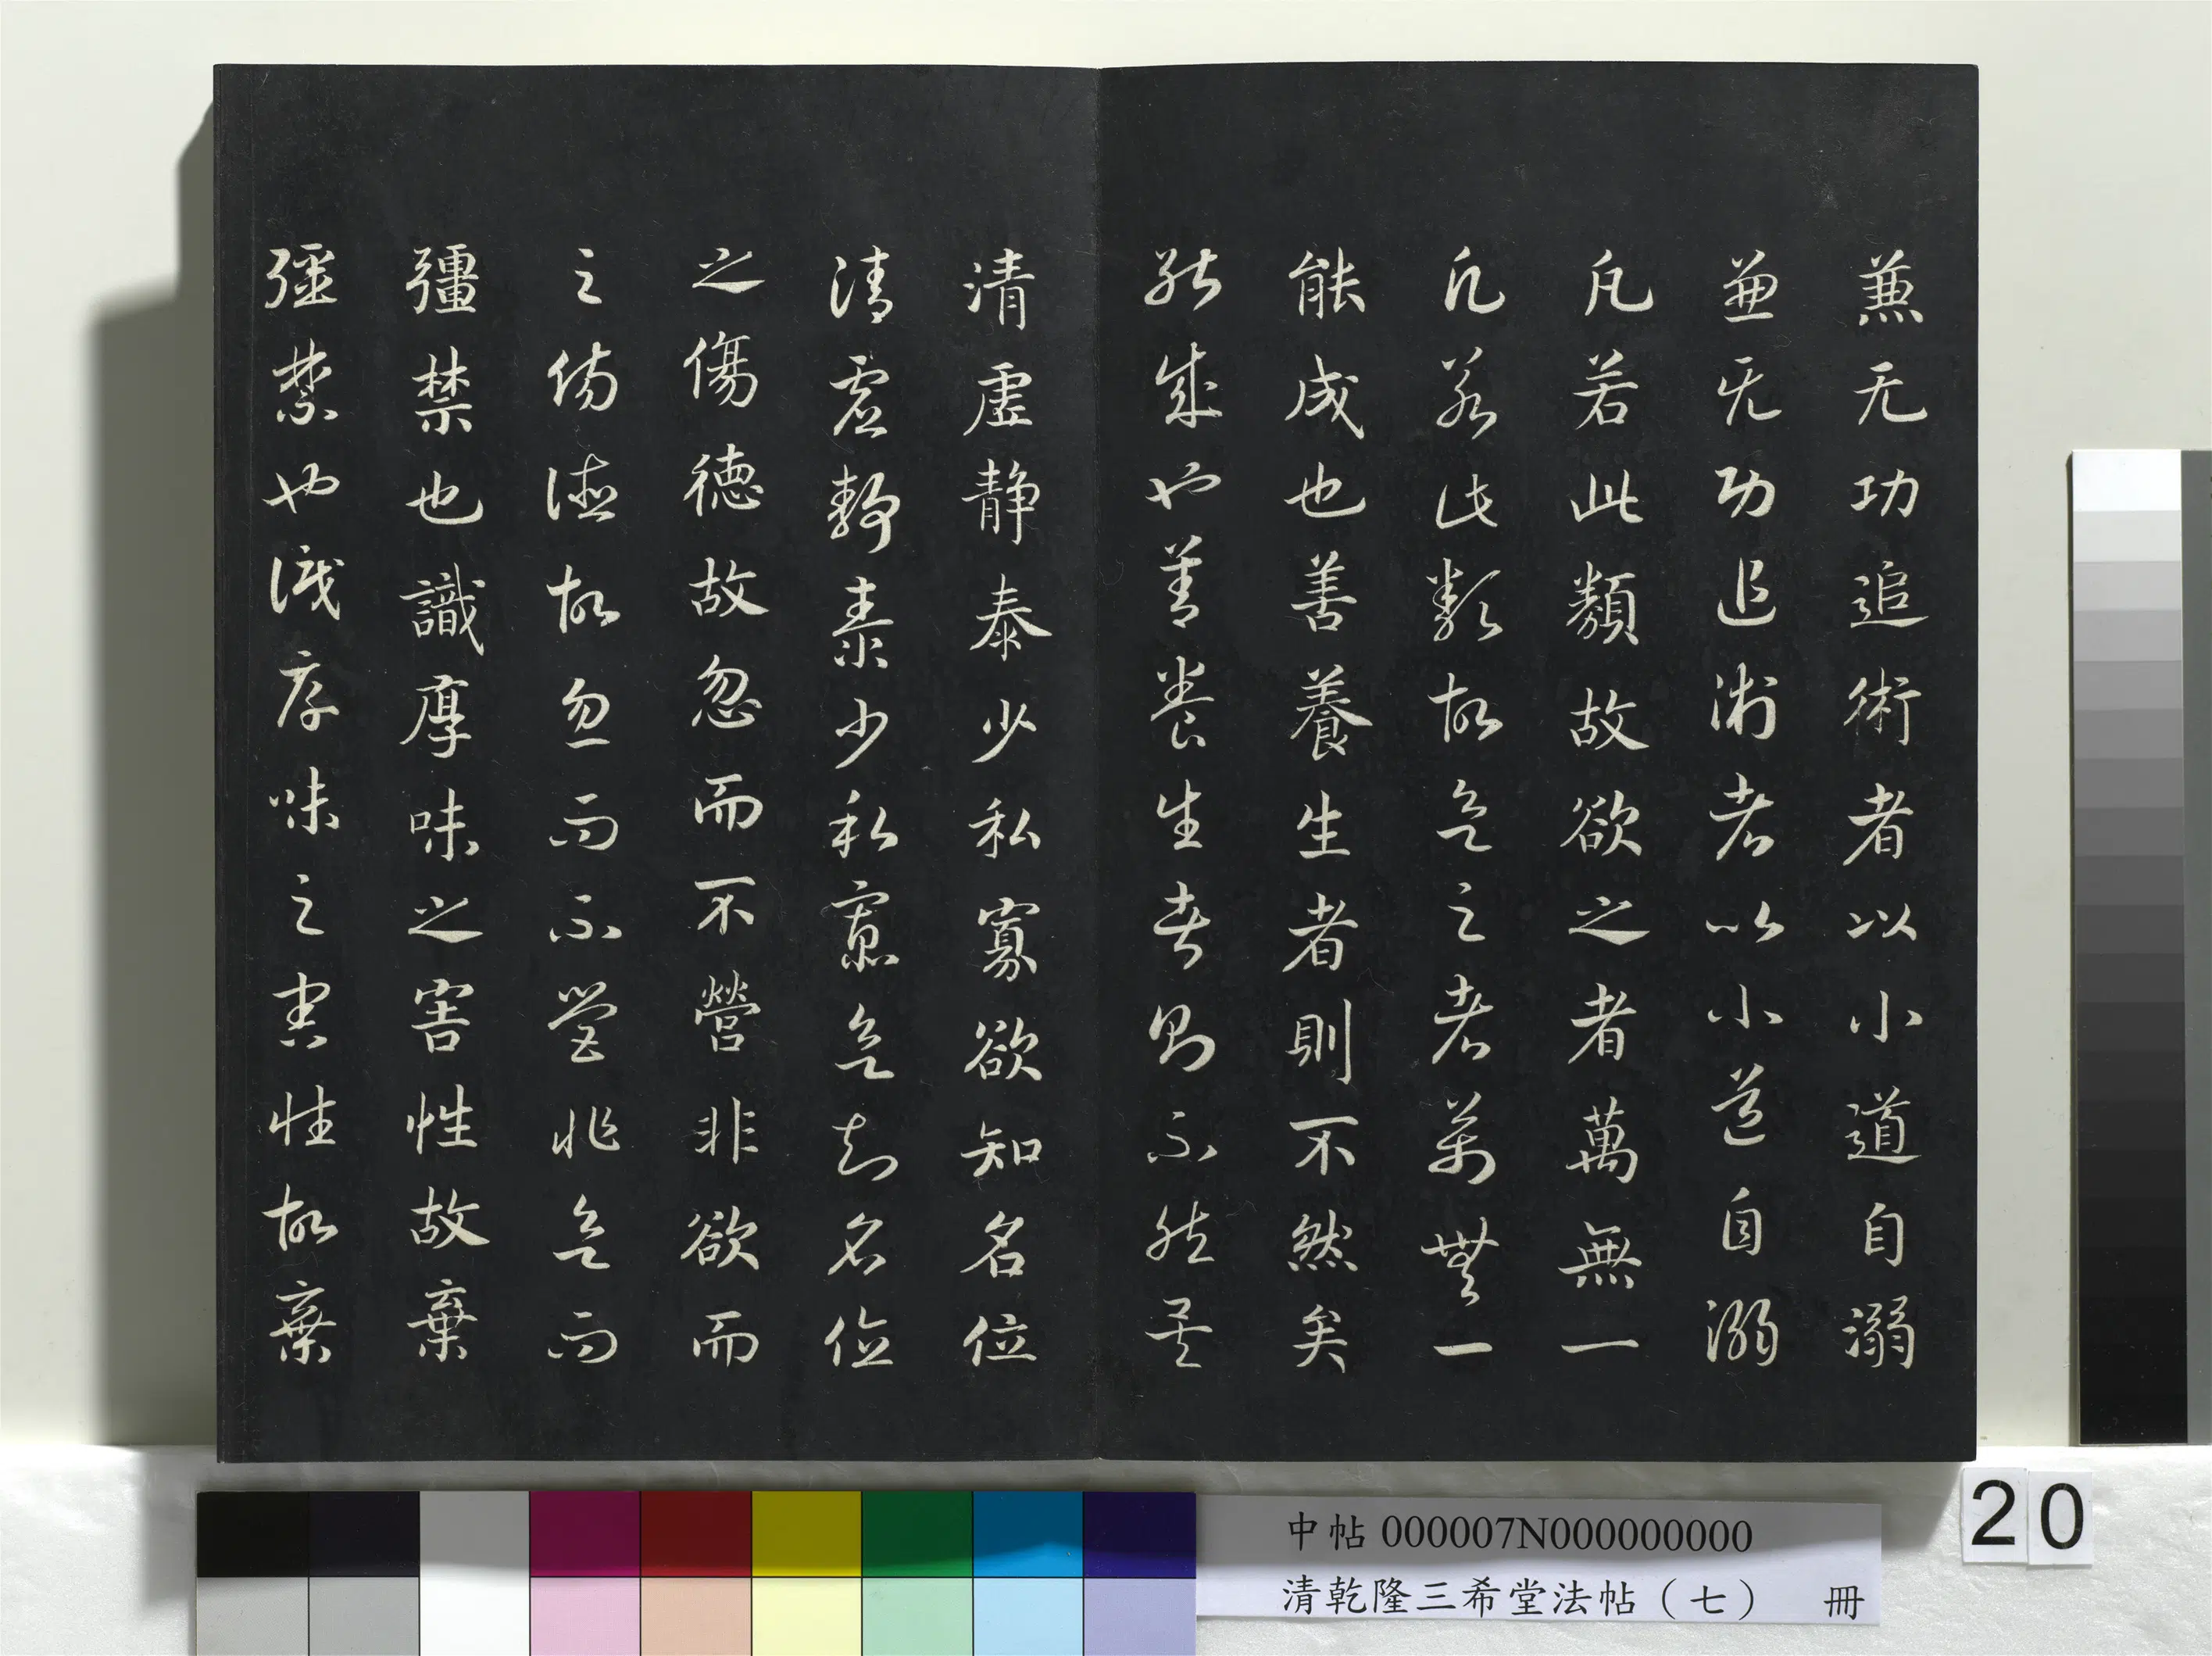 蕪无功追術者以小道自溺
蕪无功追術者以小道自溺
凡若此類故欲之者萬無一
凡若此類故欲之者萬無一
能成也善養生者則不然矣
能成也善養生者則不然矣
清虛静泰少私寡欲知名位
清虛静泰少私寡欲知名位
之傷德故忽而不營非欲而
之傷德故忽而不營非欲而
彊禁也識厚味之害性故棄
彊禁也識厚味之害性故棄
中帖 000007N000000000
清乾隆三希堂法帖(七) 冊
20